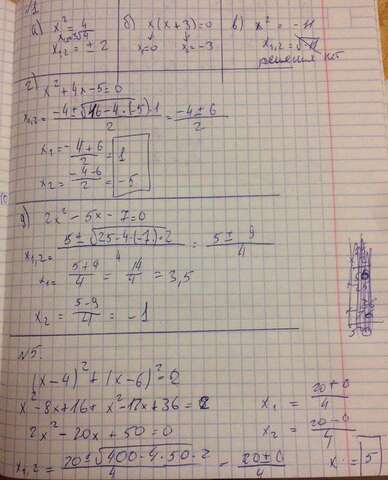 №1
а) x² = 4 б) x(x+3)=0 в) x² = -11
x₁,₂ = ± 2 x=0 x=-3 x₁,₂=√-11
решения нет
г) x²+4x-5=0
x₁,₂= (-4±√(16-4·(-5)·1))/2 = (-4±6)/2
x₁ = (-4+6)/2 = 1
x₂ = (-4-6)/2 = -5
д) 2x² - 5x - 7=0
x₁,₂= (5±√(25-4·(-7)·2))/4 = (5±9)/4
x₁= (5+9)/4 = 14/4 = 3,5
x₂ = (5-9)/4 = -1
№5.
(x-4)²+(x-6)²=2
x²-8x+16+x²-12x+36=2
2x²-20x+50=0
x₁,₂ = (20±√(400-4·50·2))/4 = (20±0)/4
x₁ = (20+0)/4
x₂ = (20-0)/4
x = 5